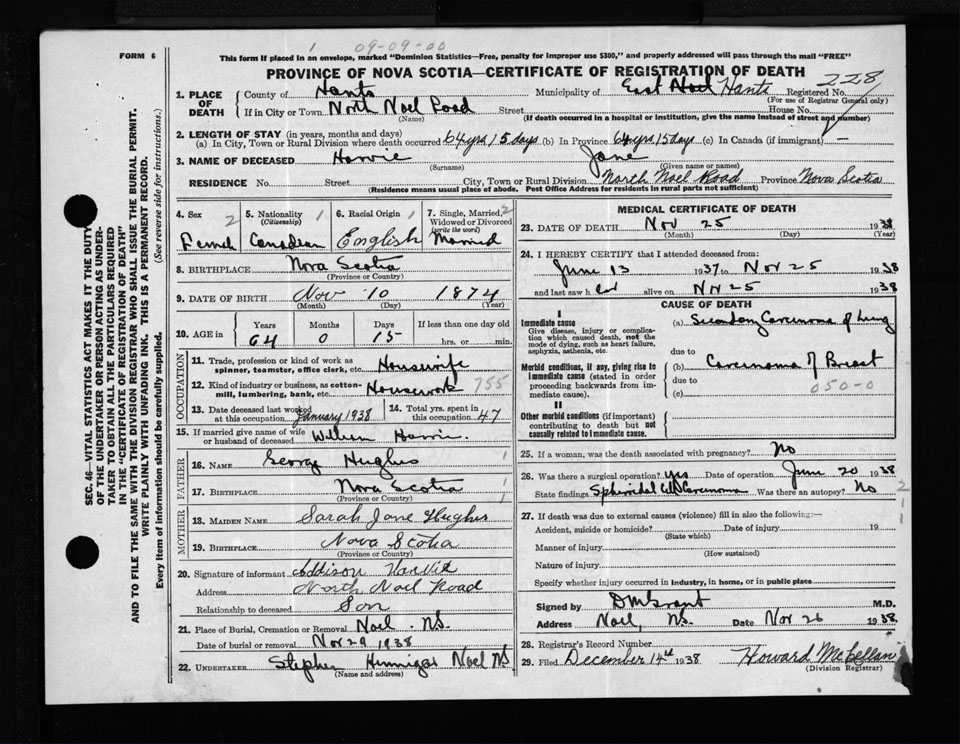 FORM 6
1 09-09-00
This form if placed in an envelope, marked "Dominion Statistics—Free, penalty for improper use $300," and properly addressed will pass through the mail "FREE"
PROVINCE OF NOVA SCOTIA—CERTIFICATE OF REGISTRATION OF DEATH
228
1. PLACE OF DEATH County of Hants Municipality of East Hants Registered No.
(For use of Registrar General only)
If in City or Town North Noel Road Street House No.
(Name) (If death occurred in a hospital or institution, give the name instead of street and number)
2. LENGTH OF STAY (in years, months and days)
(a) In City, Town or Rural Division where death occurred 64 yrs 15 days (b) In Province 64 yrs 15 days (c) In Canada (if immigrant) —
3. NAME OF DECEASED Harvie Jane
(Surname) (Given name or names)
RESIDENCE No. Street City, Town or Rural Division North Noel Road Province Nova Scotia
(Residence means usual place of abode. Post Office Address for residents in rural parts not sufficient)
SEC. 46—VITAL STATISTICS ACT MAKES IT THE DUTY
OF THE UNDERTAKER OR PERSON ACTING AS UNDER-
TAKER TO OBTAIN ALL THE PARTICULARS REQUIRED
IN THE "CERTIFICATE OF REGISTRATION OF DEATH"
AND TO FILE THE SAME WITH THE DIVISION REGISTRAR WHO SHALL ISSUE THE BURIAL PERMIT.
WRITE PLAINLY WITH UNFADING INK. THIS IS A PERMANENT RECORD.
Every item of information should be carefully supplied. (See reverse side for instructions.)
4. Sex 2
Femal
5. Nationality 1
(Citizenship)
Canadian
6. Racial Origin 1
English
7. Single, Married, 2
Widowed or Divorced
(write the word)
Married
8. BIRTHPLACE Nova Scotia
(Province or Country)
9. DATE OF BIRTH Nov 10 1874
(Month) (Day) (Year)
10. AGE in Years Months Days If less than one day old
64 0 15 hrs. or min.
OCCUPATION
11. Trade, profession or kind of work as
spinner, teamster, office clerk, etc. Housewife
12. Kind of industry or business, as cotton-
mill, lumbering, bank, etc. Housework 755
13. Date deceased last worked
at this occupation January 1938
14. Total yrs. spent in
this occupation 47
15. If married give name of wife
or husband of deceased William Harvie.
FATHER
16. NAME George Hughes 1
17. BIRTHPLACE Nova Scotia 1
(Province or Country)
MOTHER
18. MAIDEN NAME Sarah Jane Hughes
19. BIRTHPLACE Nova Scotia
(Province or Country)
20. Signature of informant Addison Harvie
Address North Noel Road
Relationship to deceased Son
21. Place of Burial, Cremation or Removal Noel. NS.
Date of burial or removal Nov 29 1938
22. UNDERTAKER Stephen Hennigar Noel NS
(Name and address)
MEDICAL CERTIFICATE OF DEATH
23. DATE OF DEATH Nov 25 1938
(Month) (Day) (Year)
24. I HEREBY CERTIFY that I attended deceased from:
June 13 1937 to Nov 25 1938
and last saw h er alive on Nov 25 1938
CAUSE OF DEATH
I
Immediate cause
Give disease, injury or complica-
tion which caused death, not the
mode of dying, such as heart failure,
asphyxia, asthenia, etc.
(a) Secondary Carcinoma of Lung
due to
Morbid conditions, if any, giving rise to
immediate cause (stated in order
proceeding backwards from im-
mediate cause).
Carcinoma of Breast
due to
050-0
(c)
II
Other morbid conditions (if important)
contributing to death but not
causally related to immediate cause.
25. If a woman, was the death associated with pregnancy? No
26. Was there a surgical operation? yes Date of operation June 20 1938
State findings Carcinoma Was there an autopsy? No
2
1
1
27. If death was due to external causes (violence) fill in also the following:—
Accident, suicide or homicide? Date of injury 19
(State which)
Manner of injury
(How sustained)
Nature of injury
Specify whether injury occurred in industry, in home, or in public place
Signed by M.D.
Address Noel, NS. Date Nov 26 1938.
28. Registrar's Record Number
29. Filed December 14th 1938 Howard McLellan
(Division Registrar)